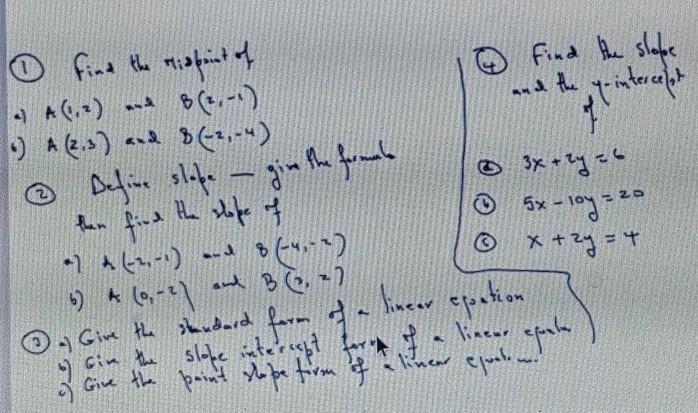 ① Find the midpoint of
a) A(1,2) and B(2,-1)
b) A(2,3) and B(-2,-4)
② Define slope — give the formula
then find the slope of
a) A(-2,-1) and B(-4,-2)
b) A(0,-2) and B(3,2)
③ a) Give the standard form of a linear equation
b) Give the slope intercept form of a linear equation
c) Give the point slope form of a linear equation.
④ Find the slope
and the y-intercept
of
ⓐ 3x + 2y = 6
ⓑ 5x - 10y = 20
ⓒ x + 2y = 4